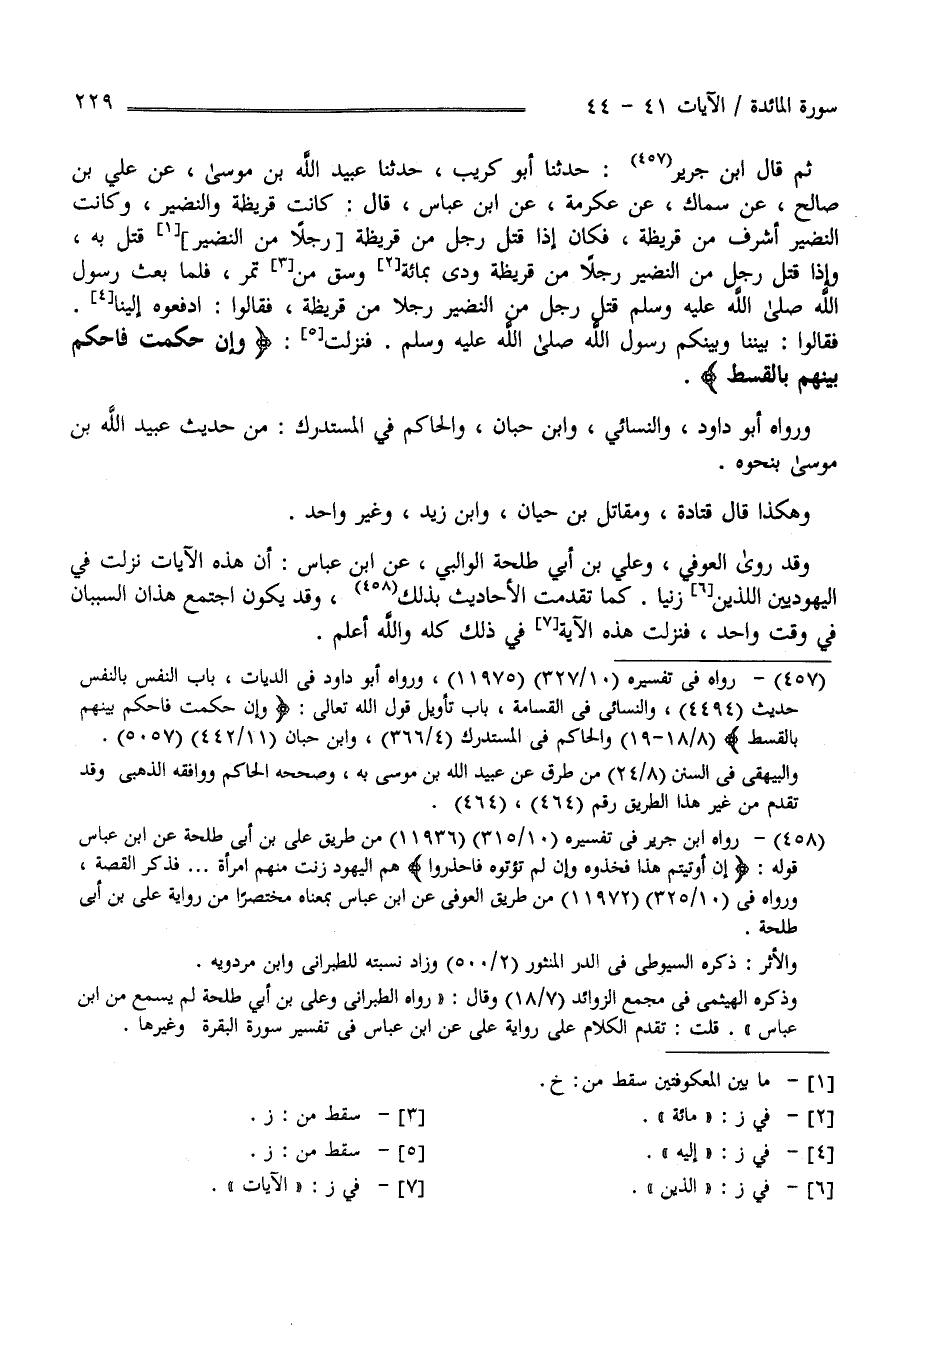 سورة المائدة / الآيات ٤١ - ٤٤ ٢٢٩
ثم قال ابن جرير(٤٥٧) : حدثنا أبو كريب ، حدثنا عبيد اللَّه بن موسىٰ ، عن علي بن
صالح ، عن سماك ، عن عكرمة ، عن ابن عباس ، قال : كانت قريظة والنضير ، وكانت
النضير أشرف من قريظة ، فكان إذا قتل رجل من قريظة [رجلًا من النضير][١] قتل به ،
وإذا قتل رجل من النضير رجلًا من قريظة ودى بمائة[٢] وسق من[٣] تمر ، فلما بعث رسول
اللَّه صلىٰ اللَّه عليه وسلم قتل رجل من النضير رجلا من قريظة ، فقالوا : ادفعوه إلينا[٤] .
فقالوا : بيننا وبينكم رسول اللَّه صلىٰ اللَّه عليه وسلم . فنزلت[٥] : ﴿ وإن حكمت فاحكم
بينهم بالقسط ﴾ .
ورواه أبو داود ، والنسائي ، وابن حبان ، والحاكم في المستدرك : من حديث عبيد اللَّه بن
موسىٰ بنحوه .
وهكذا قال قتادة ، ومقاتل بن حيان ، وابن زيد ، وغير واحد .
وقد روىٰ العوفي ، وعلي بن أبي طلحة الوالبي ، عن ابن عباس : أن هذه الآيات نزلت في
اليهوديين اللذين[٦] زنيا . كما تقدمت الأحاديث بذلك(٤٥٨) ، وقد يكون اجتمع هذان السببان
في وقت واحد ، فنزلت هذه الآية[٧] في ذلك كله واللَّه أعلم .
(٤٥٧) - رواه فى تفسيره (٣٢٧/١٠) (١١٩٧٥) ، ورواه أبو داود فى الديات ، باب النفس بالنفس
حديث (٤٤٩٤) ، والنسائى فى القسامة ، باب تأويل قول الله تعالى : ﴿ وإن حكمت فاحكم بينهم
بالقسط ﴾ (١٨/٨-١٩) والحاكم فى المستدرك (٣٦٦/٤) ، وابن حبان (٤٤٢/١١) (٥٠٥٧) .
والبيهقى فى السنن (٢٤/٨) من طرق عن عبيد الله بن موسى به ، وصححه الحاكم ووافقه الذهبى وقد
تقدم من غير هذا الطريق رقم (٤٦٤) ، (٤٦٤) .
(٤٥٨) - رواه ابن جرير فى تفسيره (٣١٥/١٠) (١١٩٣٦) من طريق على بن أبى طلحة عن ابن عباس
قوله : ﴿ إن أوتيتم هذا فخذوه وإن لم تؤتوه فاحذروا ﴾ هم اليهود زنت منهم امرأة ... فذكر القصة ،
ورواه فى (٣٢٥/١٠) (١١٩٧٢) من طريق العوفى عن ابن عباس بمعناه مختصرًا من رواية على بن أبى
طلحة .
والأثر : ذكره السيوطى فى الدر المنثور (٥٠٠/٢) وزاد نسبته للطبرانى وابن مردويه .
وذكره الهيثمى فى مجمع الزوائد (١٨/٧) وقال : « رواه الطبرانى وعلى بن أبي طلحة لم يسمع من ابن
عباس » . قلت : تقدم الكلام على رواية على عن ابن عباس فى تفسير سورة البقرة وغيرها .
[١] - ما بين المعكوفتين سقط من : خ .
[٢] - في ز : « مائة » . [٣] - سقط من : ز .
[٤] - في ز : « إليه » . [٥] - سقط من : ز .
[٦] - في ز : « الذين » . [٧] - في ز : « الآيات » .